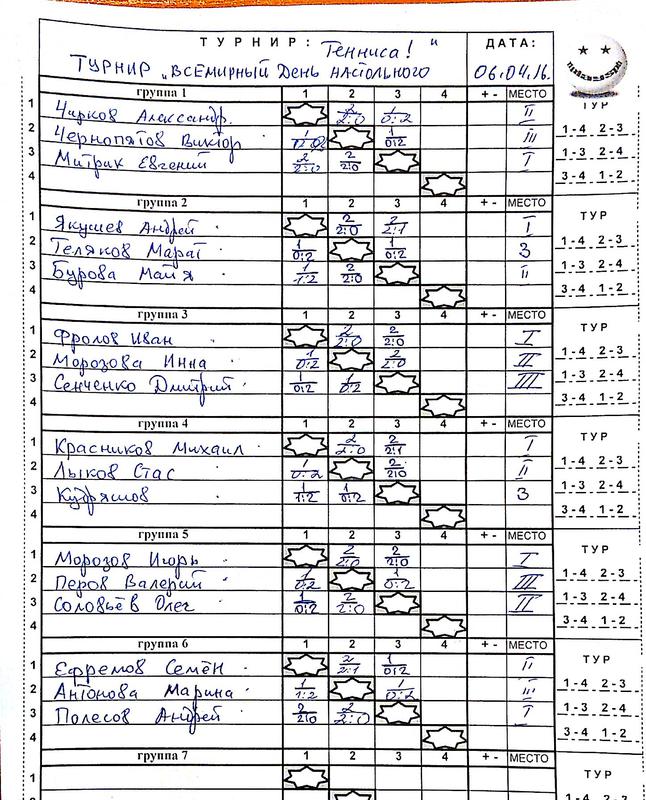 ТУРНИР: Тенниса! "
ДАТА:
Турнир „Всемирный День настольного
06.04.16.
группа 1 1 2 3 4 + - МЕСТО
ТУР
1 Чирков Александр. 2 2:0 1 0:2 II
1-4 2-3
2 Чернопятов Виктор 1 0:2 1 0:2 III
1-3 2-4
3 Митрик Евгений 2 2:0 2 2:0 I
3-4 1-2
4
группа 2 1 2 3 4 + - МЕСТО
ТУР
1 Якушев Андрей 2 2:0 2 2:1 I
1-4 2-3
2 Теляков Марат 1 0:2 1 0:2 3
1-3 2-4
3 Бурова Майя 1 1:2 2 2:0 II
3-4 1-2
4
группа 3 1 2 3 4 + - МЕСТО
ТУР
1 Фролов Иван 2 2:0 2 2:0 I
1-4 2-3
2 Морозова Инна 1 0:2 2 2:0 II
1-3 2-4
3 Сенченко Дмитрий 1 0:2 1 0:2 III
3-4 1-2
4
группа 4 1 2 3 4 + - МЕСТО
ТУР
1 Красников Михаил 2 2:0 2 2:1 I
1-4 2-3
2 Лыков Стас 1 0:2 2 2:0 II
1-3 2-4
3 Кудряшов 1 1:2 1 0:2 3
3-4 1-2
4
группа 5 1 2 3 4 + - МЕСТО
ТУР
1 Морозов Игорь 2 2:0 2 2:0 I
1-4 2-3
2 Перов Валерий 1 0:2 1 0:2 III
1-3 2-4
3 Соловьёв Олег 1 0:2 2 2:0 II
3-4 1-2
4
группа 6 1 2 3 4 + - МЕСТО
ТУР
1 Ефремов Семён 2 2:1 1 0:2 II
1-4 2-3
2 Антонова Марина 1 1:2 1 0:2 III
1-3 2-4
3 Полесов Андрей 2 2:0 2 2:0 I
3-4 1-2
4
группа 7 1 2 3 4 + - МЕСТО
ТУР
1
1-4 2-3
2